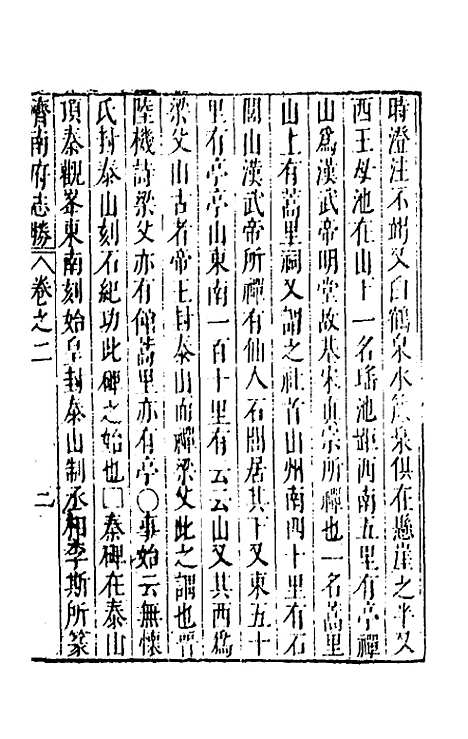 時澄注不竭又白鶴泉水簾泉俱在懸崖之半又
西王母池在山下一名瑤池岱西南五里有亭禪
山爲漢武帝明堂故基宋真宗所禪也一名蒿里
山上有蒿里祠又謂之社首山州南四十里有石
閭山漢武帝所禪有仙人石閭居其下又東五十
里有亭亭山東南一百十里有云云山又其西爲
梁父山古者帝王封泰山而禪梁父此之謂也晉
陸機詩梁父亦有館蒿里亦有亭〇事始云無懷
氏封泰山刻石紀功此碑之始也□秦碑在泰山
頂秦觀峯東南刻始皇封泰山制丞相李斯所篆
濟南府志勝 卷之二 二